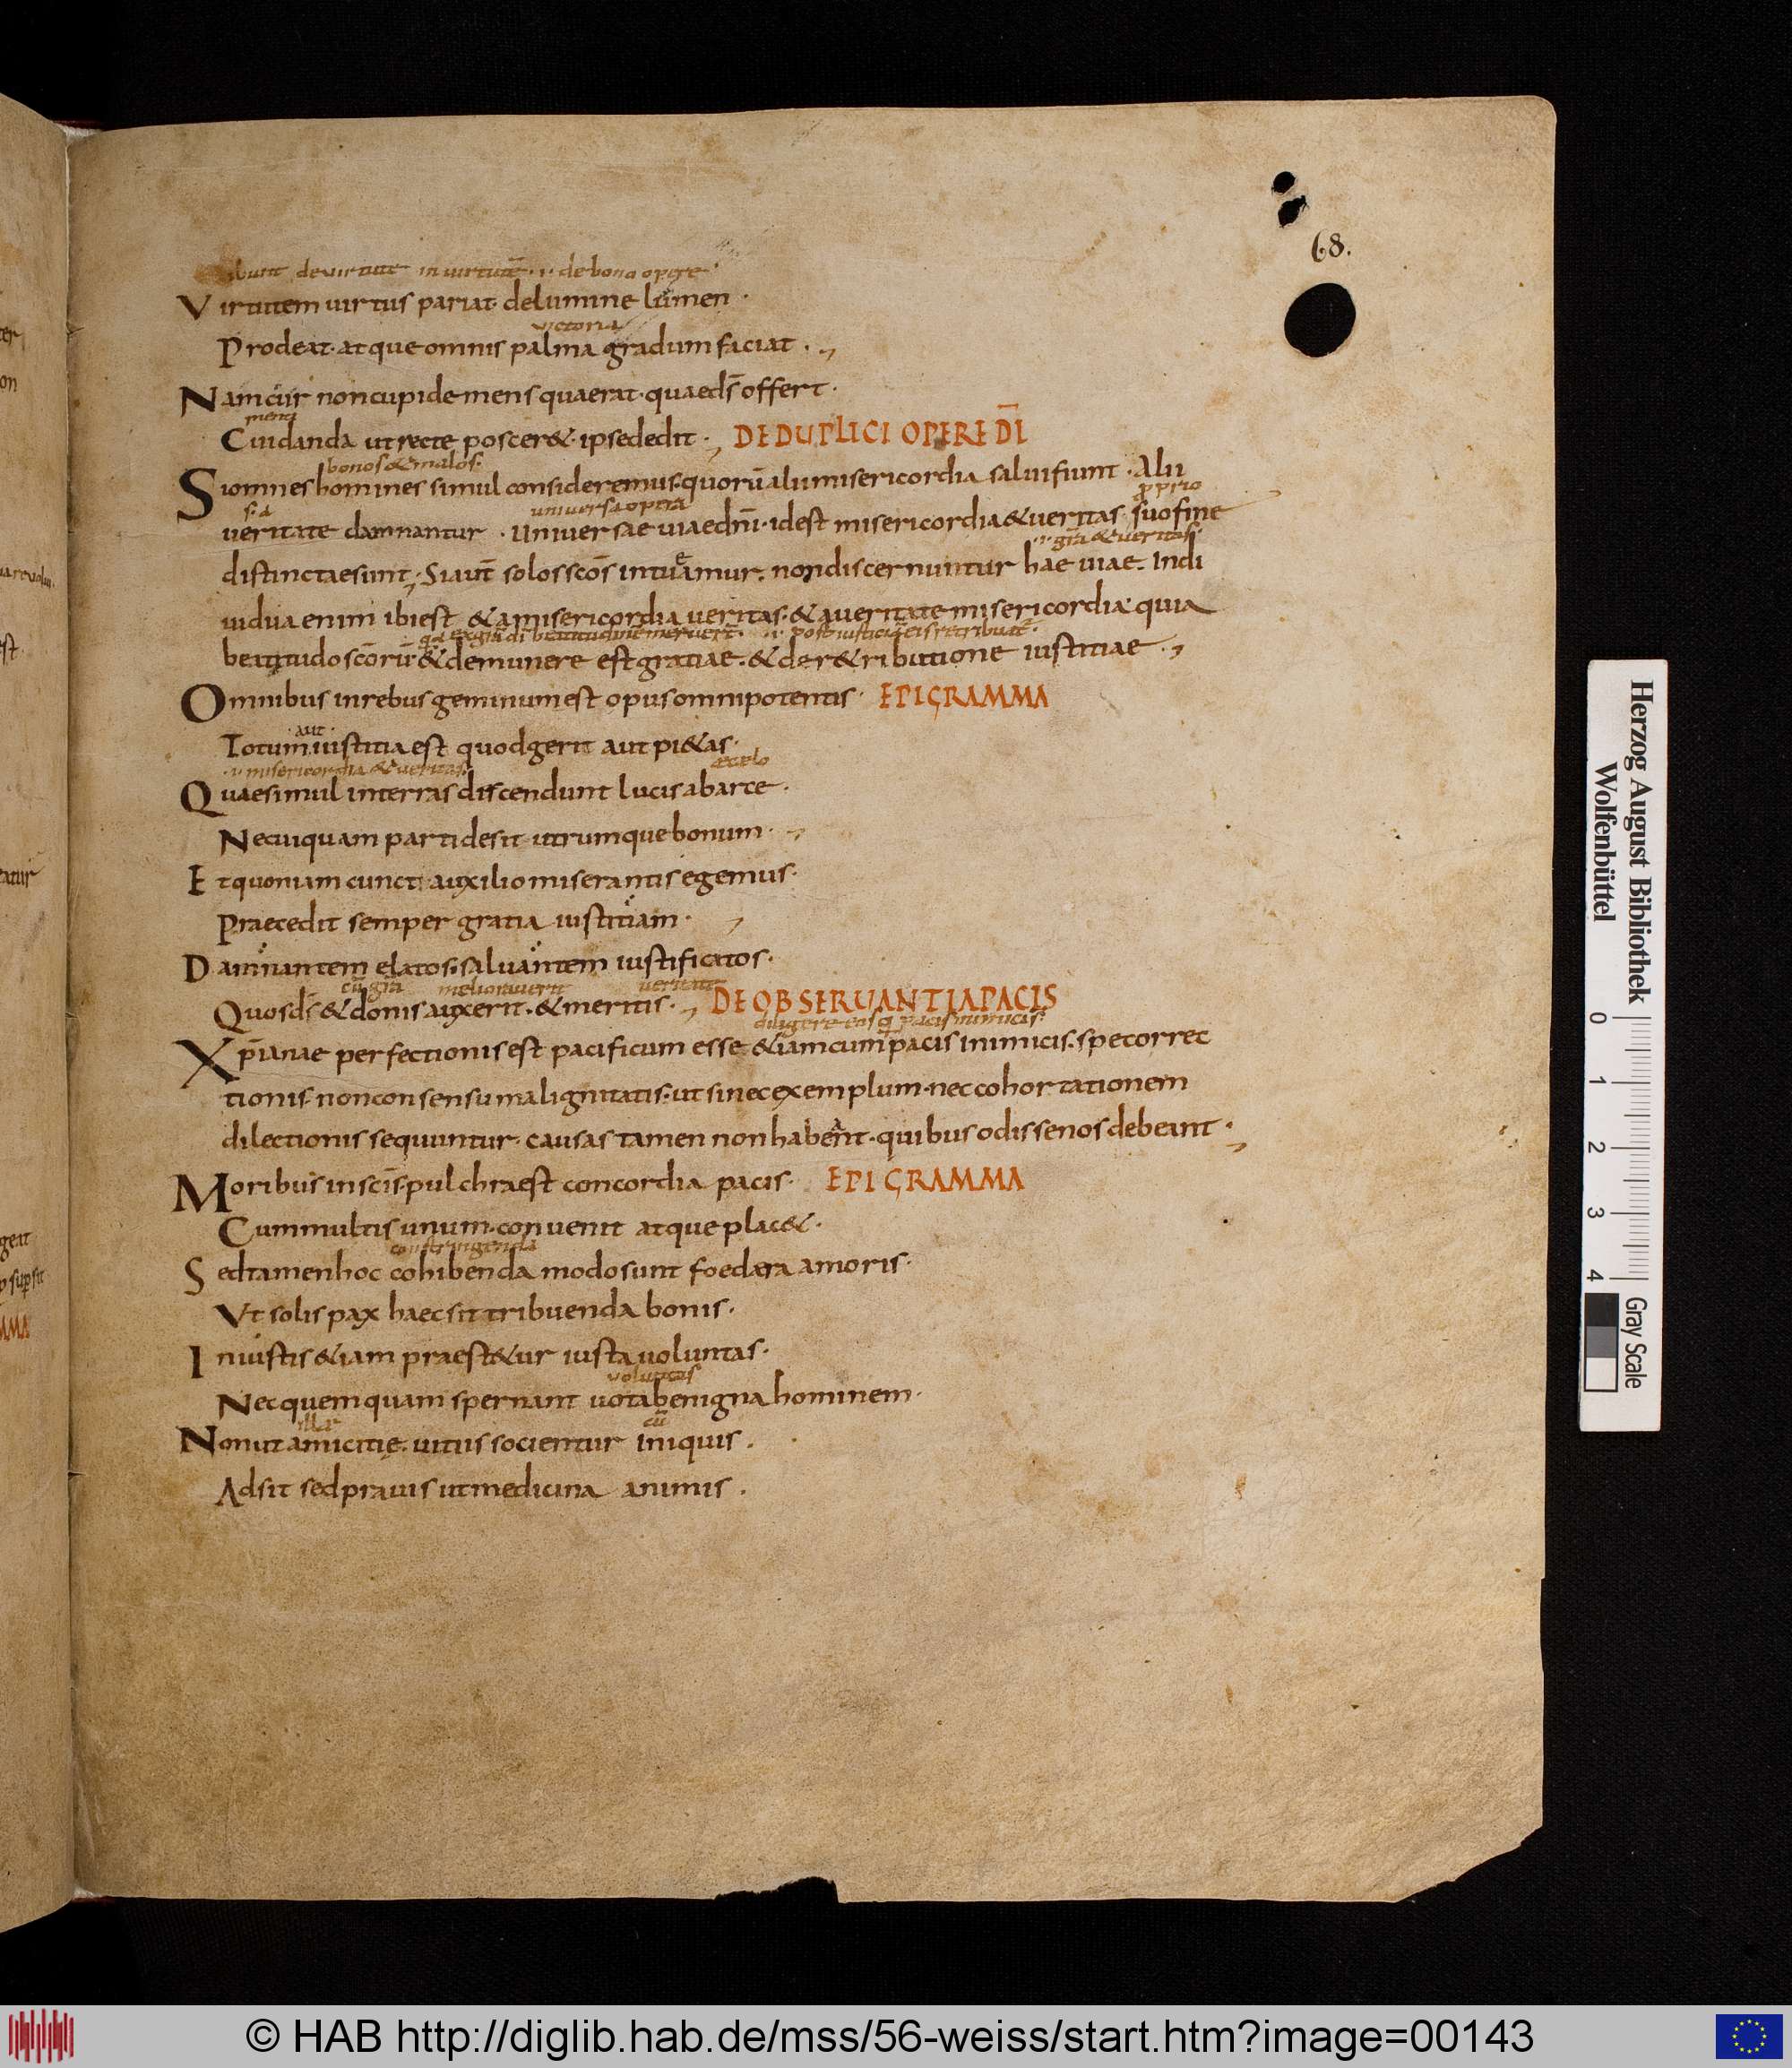 68.
ibunt de virtute in virtutē .i. de bono opere
Virtutem uirtus pariat de lumine lumen .
victoria
Prodeat. atque omnis palma gradum faciat .
Nam cur non cupide mens quaerat. quae dš offert .
mens
Cui danda ut recte poscer&. ipse dedit . DE DUPLICI OPERE DĪ
bonos & malos.
Si omnes homines simul consideremus. quorū alii misericordia salui fiunt . Alii
s. a universa opera proprio
ueritate damnantur . Uniuersae uiae dnī. id est misericordia & ueritas. suo fine
.i. gr̄a & ueritas.
distinctae sunt. Si aūt solos scōs intueamur. non discernuntur hae uiae. Indi
uidua enim ibi est & a misericordia ueritas. & a ueritate misericordia. quia
beatitudo scōrū. & de munere est gratiae. & de r&ributione iustitiae .
Omnibus in rebus geminum est opus omnipotentis . EPIGRAMMA
aut
Totum iustitia est quod gerit aut pi&as.
.i. misericordia & ueritas. de celo
Quae simul in terras discendunt lucis ab arce .
Nec uiquam parti desit utrumque bonum .
Et quoniam cuncti auxilio miserantis egemus.
Praecedit semper gratia iustitiam .
Damnantem elatos. saluantem iustificatos.
cū gr̄a melioraverit veritate
Quos dš & donis auxerit. & meritis. DE OBSERUANTIA PACIS
diligere eos q pacis inimicis.
Xp̄ianae perfectionis est pacificum esse &iam cum pacis inimicis. spe correc
tionis. non consensu malignitatis. ut si nec exemplum. nec cohortationem
dilectionis sequuntur. causas tamen non habeant. quibus odisse nos debeant .
Moribus in scīs. pulchra est concordia pacis. EPIGRAMMA
Cum multis unum. conuenit atque plac&.
constringenda
Sed tamen hoc cohibenda modo sunt foedera amoris.
Vt solis pax haec sit tribuenda bonis.
Iniustis &iam praest&ur iusta uoluntas.
voluntas
Nec quemquam spernant uota benigna hominem.
illa cū
Non ut amicitię. uitiis socientur iniquis .
Adsit sed prauis ut medicina animis .
Herzog August Bibliothek
Wolfenbüttel
0 1 2 3 4
Gray Scale
© HAB http://diglib.hab.de/mss/56-weiss/start.htm?image=00143